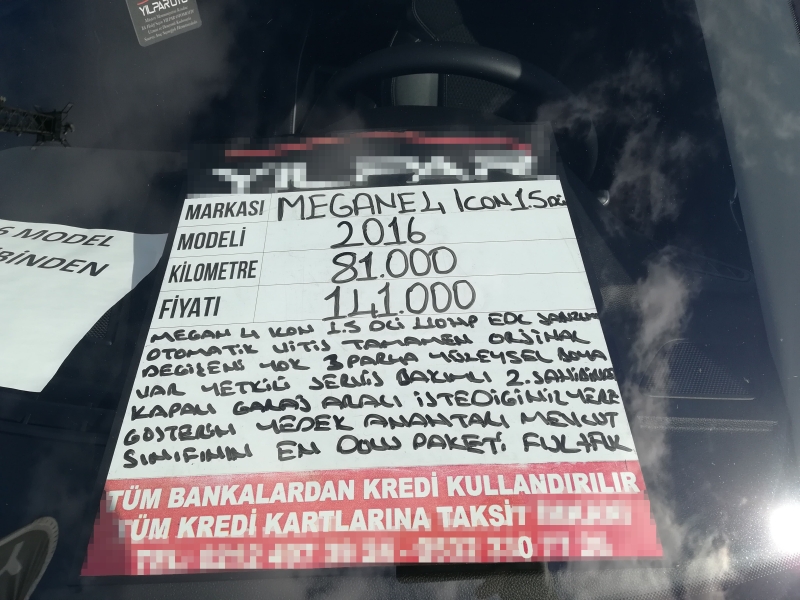 YILPAR OTO
YILPAR
MARKASI MEGANE 4 ICON 1.5 DCi
MODELİ 2016
KİLOMETRE 81.000
FİYATI 141.000
MODEL
BİNDEN
MEGAN 4 ICON 1.5 DCi 110HP EDC ŞANZUM
OTOMATİK VİTİS TAMAMEN ORJİNAL
DEĞİŞENİ YOK 3 PARÇA YÜZEYSEL BOYA
VAR YETKİLİ SERVİS BAKIMLI 2. SAHİBİNDEN
KAPALI GARAJ ARACI İSTEDİĞİNİZ YERE
GÖSTERİN YEDEK ANAHTARI MEVCUT
SINIFININ EN DOLU PAKETİ FUL+FUL
TÜM BANKALARDAN KREDİ KULLANDIRILIR
TÜM KREDİ KARTLARINA TAKSİT